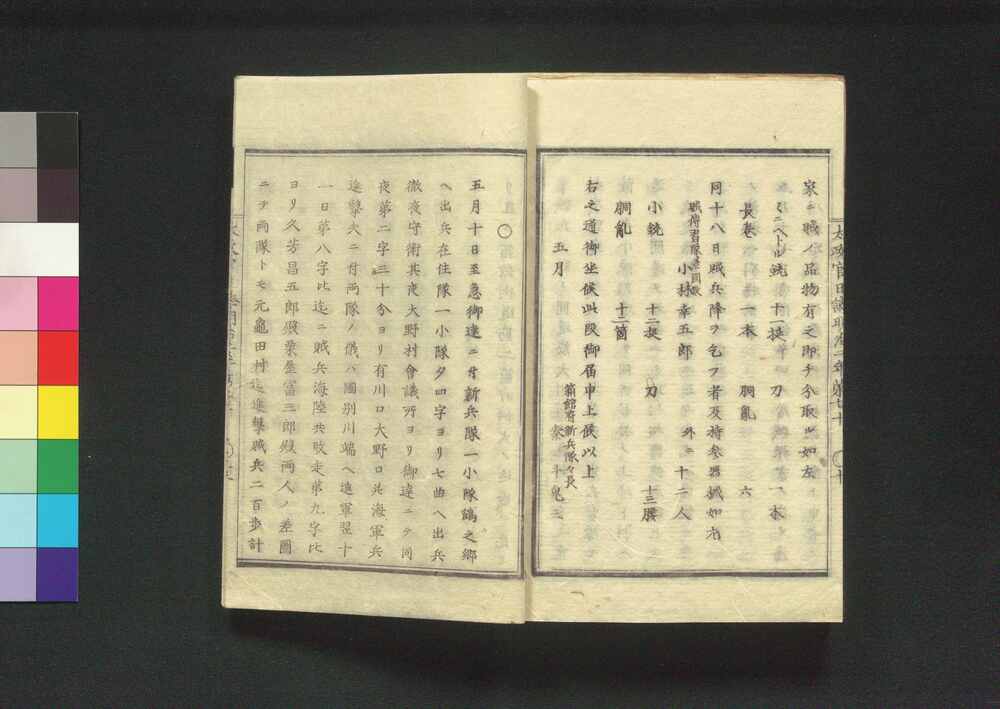 家ニ賊ノ品物有之即チ分取ル如左
ミニヘール銃 十一挺 刀 一本
長巻 一本 胴亂 六
同十八日賊兵降ヲ乞フ者及持参器械如左
賊傳習隊差圖役
小林幸五郎 外ニ十二人
小銃 十二挺 刀 十三腰
胴亂 十二箇
右之通御坐候此段御届申上候以上
五月
箱館府新兵隊々長
○
五月十日至急御達ニ付新兵隊一小隊鷂之郷
ヘ出兵在住隊一小隊夕四字ヨリ七曲ヘ出兵
徹夜守衛其夜大野村會議所ヨリ御達ニテ同
夜第二字三十分ヨリ有川口大野口共海軍兵
進撃夫ニ付両隊ノ儀ハ國別川端ヘ進軍翌十
一日第八字比迄ニ賊兵海陸共敗走第九字比
ヨリ久芳昌五郎殿粟屋富三郎殿両人ノ差圖
ニテ両隊トモ元龜田村迄進撃賊兵二百歩計